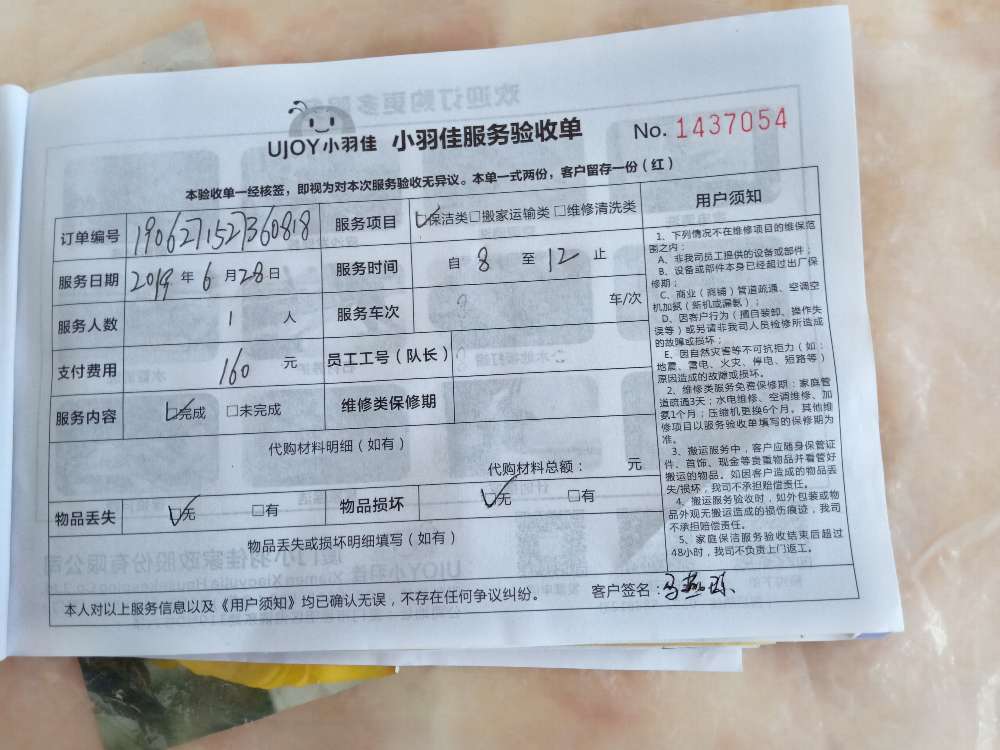 UJOY小羽佳 小羽佳服务验收单 No. 1437054
本验收单一经核签，即视为对本次服务验收无异议。本单一式两份，客户留存一份（红）
订单编号 190627152360818 服务项目 保洁类 □搬家运输类 □维修清洗类
服务日期 2019 年 6 月 28 日 服务时间 自 8 至 12 止
服务人数 1 人 服务车次 车/次
支付费用 160 元 员工工号（队长）
服务内容 完成 □未完成 维修类保修期
代购材料明细（如有）
代购材料总额： 元
物品丢失 无 □有 物品损坏 无 □有
物品丢失或损坏明细填写（如有）
本人对以上服务信息以及《用户须知》均已确认无误，不存在任何争议纠纷。 客户签名：
用户须知
1、下列情况不在维修项目的维保范
围之内：
A、非我司员工提供的设备或部件；
B、设备或部件本身已经超过出厂保
修期；
C、商业（商铺）管道疏通、空调空
机加氨（新机或漏氨）；
D、因客户行为（擅自装卸、操作失
误等）或另请非我司人员检修所造成
的故障或损坏；
E、因自然灾害等不可抗拒力（如：
地震、雷电、火灾、停电、短路等）
原因造成的故障或损坏。
2、维修类服务免费保修期：家庭管
道疏通3天；水电维修、空调维修、加
氨1个月；压缩机更换6个月。其他维
修项目以服务验收单填写的保修期为
准。
3、搬运服务中，客户应随身保管证
件、首饰、现金等贵重物品并看管好
搬运的物品。如因客户造成的物品丢
失/损坏，我司不承担赔偿责任。
4、搬运服务验收时，如外包装或物
品外观无搬运造成的损伤痕迹，我司
不承担赔偿责任。
5、家庭保洁服务验收结束后超过
48小时，我司不负责上门返工。